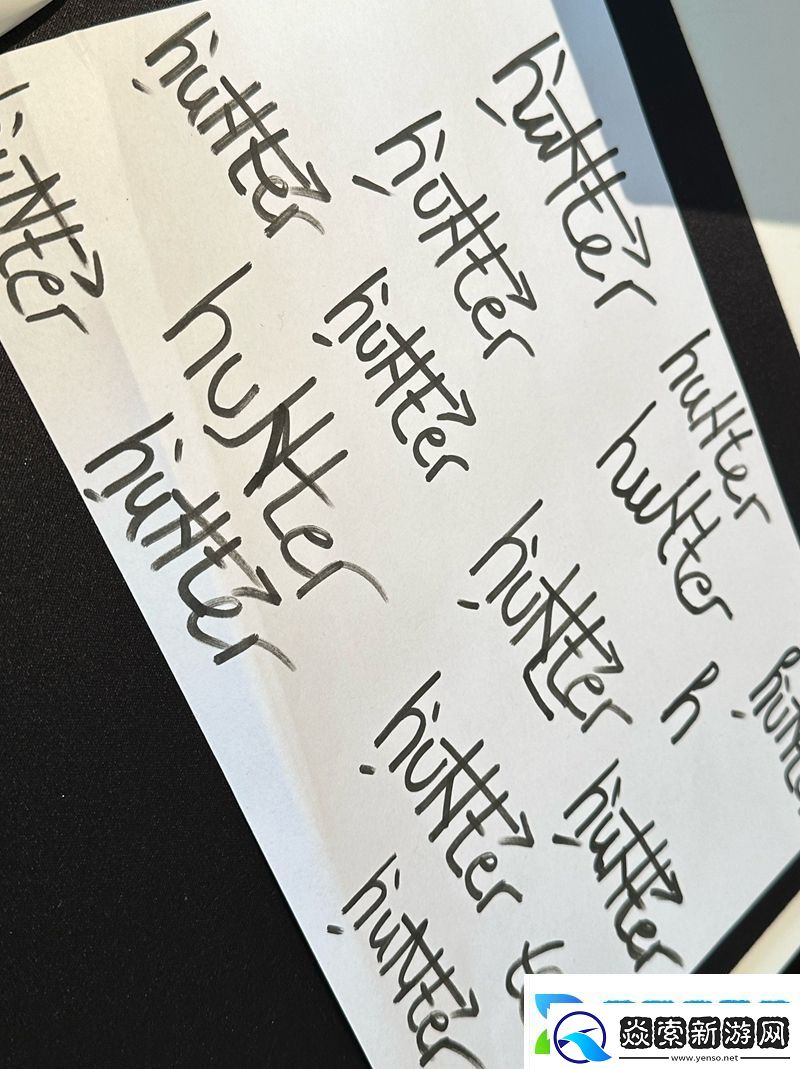 hunter
hunter
hunter
hunter
hunter
hunter
hunter
hunter
hunter
hunter
hunter
h
hunter
hunter
hunter
焱索新游网
www.yenso.net